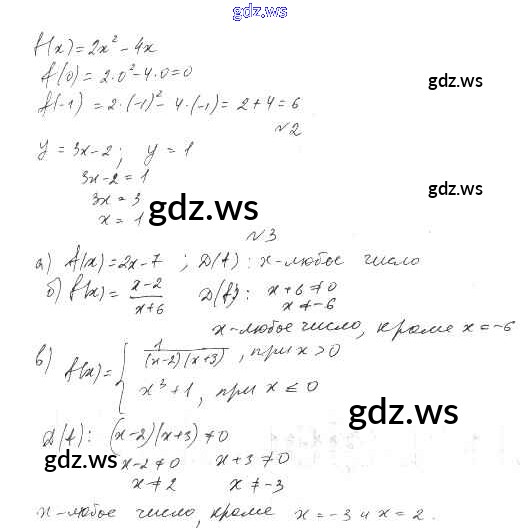 gdz.ws
f(x) = 2x² - 4x
f(0) = 2·0² - 4·0 = 0
gdz.ws
f(-1) = 2·(-1)² - 4·(-1) = 2 + 4 = 6
№2
y = 3x - 2; y = 1
3x - 2 = 1
gdz.ws
3x = 3
x = 1
gdz.ws
№3
а) f(x) = 2x - 7; D(f): x - любое число
б) f(x) = (x-2)/(x+6) D(f): x + 6 ≠ 0
x ≠ -6
gdz.ws
x - любое число, кроме x = -6
в) f(x) = { 1/((x-2)(x+3)), при x > 0
x³ + 1, при x ≤ 0
gdz.ws
D(f): (x-2)(x+3) ≠ 0
gdz.ws
x - 2 ≠ 0 x + 3 ≠ 0
x ≠ 2 x ≠ -3
gdz.ws
x - любое число, кроме x = -3 и x = 2.